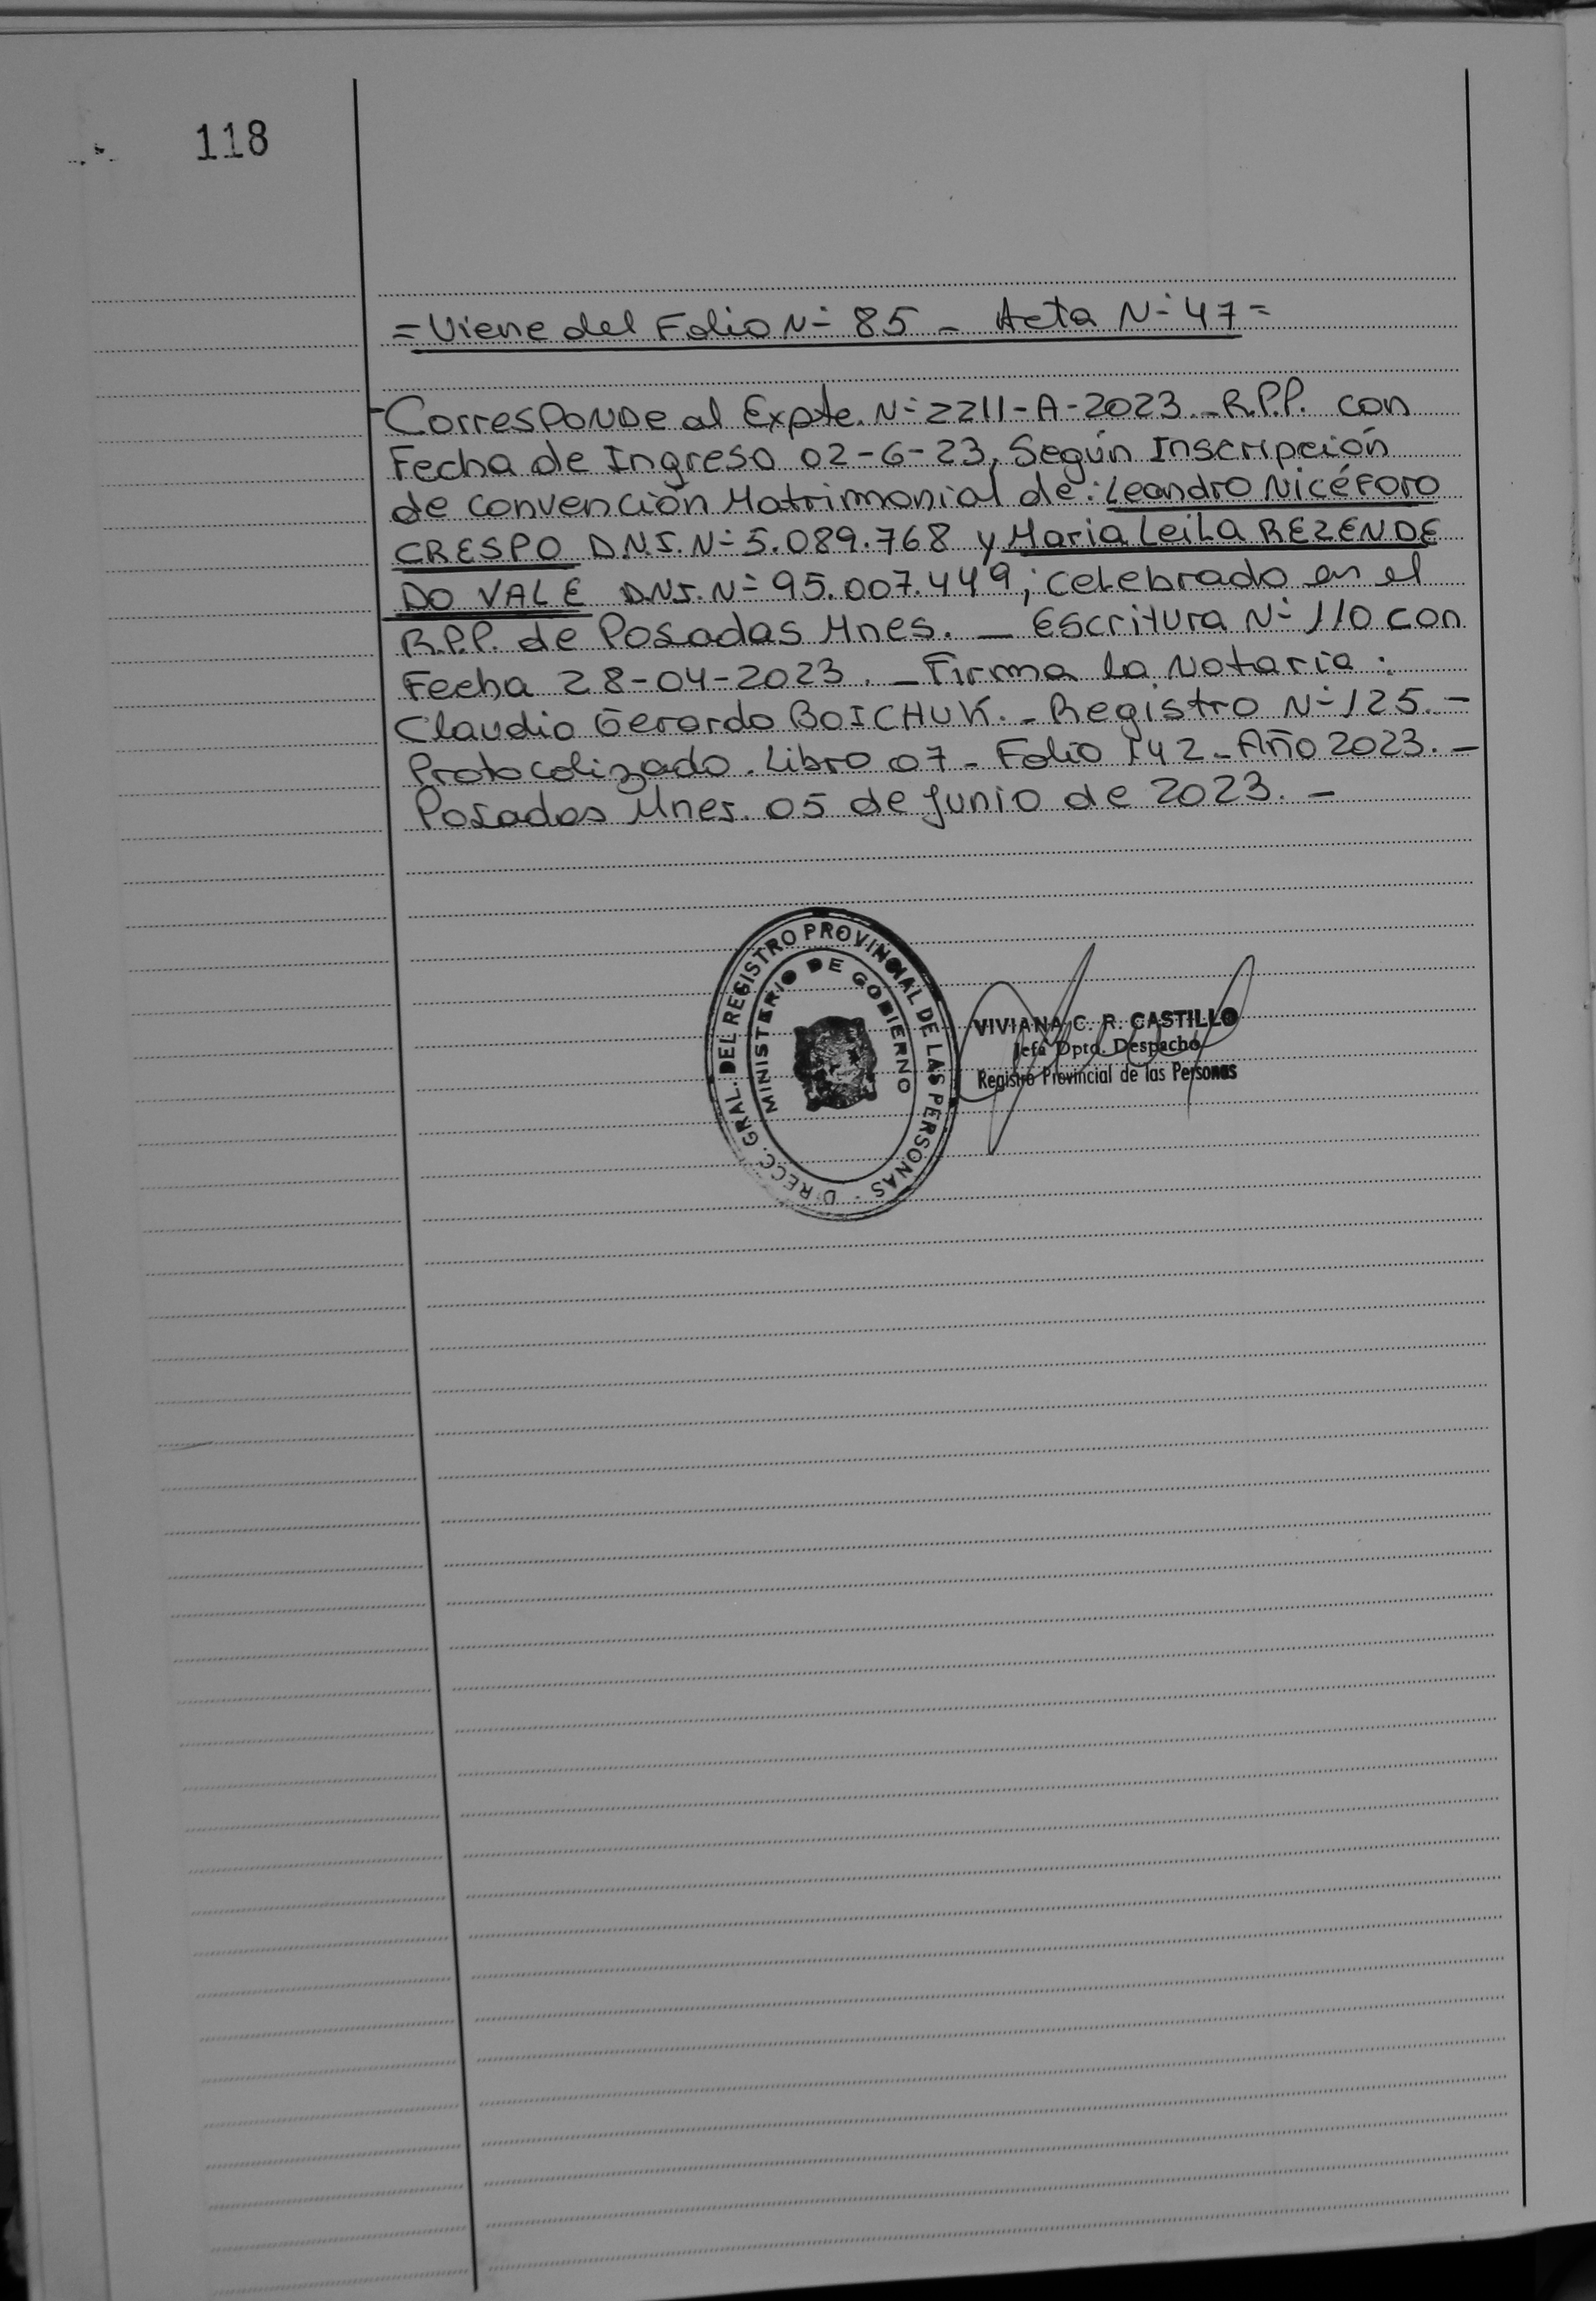 118
=Viene del Folio N- 85 - Acta N- 47=
-Corresponde al Expte. N- 2211-A-2023.-R.P.P. con
Fecha de Ingreso 02-6-23, Según Inscripción
de convención Matrimonial de: Leandro Nicéforo
CRESPO D.N.I. N- 5.089.768 y Maria Leila REZENDE
DO VALE D.N.I. N- 95.007.449; celebrado en el
R.P.P. de Posadas Mnes. - Escritura N- 110 con
Fecha 28-04-2023. - Firma la Notaria:
Claudio Gerardo BOICHUK. - Registro N- 125. -
Protocolizado. Libro 07 - Folio 142 - Año 2023. -
Posadas Mnes. 05 de Junio de 2023. -
DIRECC. GRAL. DEL REGISTRO PROVINCIAL DE LAS PERSONAS -
MINISTERIO DE GOBIERNO
VIVIANA C. R. CASTILLO
Jefa Dpto. Despacho
Registro Provincial de las Personas